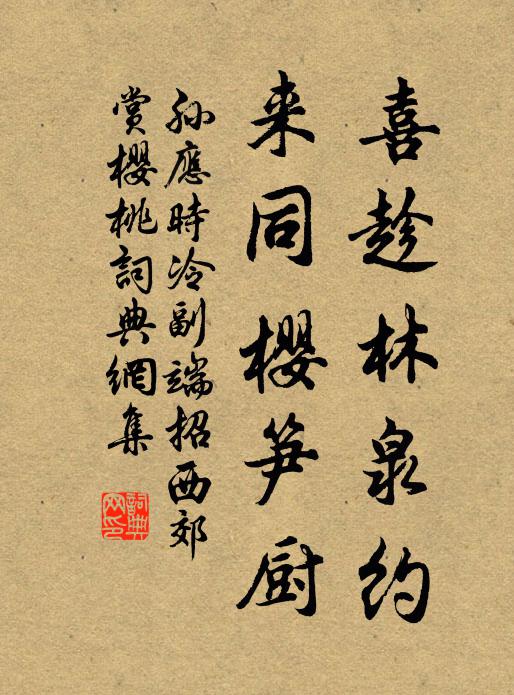 喜趁林泉约
来同樱笋厨
孙應時冷副端招西郊
賞櫻桃詞典網集
詞典网印